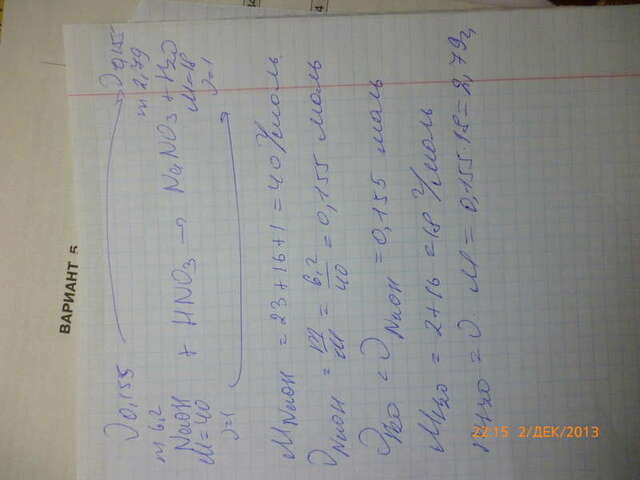 ВАРИАНТ 5
ν 0,155 ν 0,155
m 6,2 m 2,79
NaOH + HNO3 → NaNO3 + H2O
M=40 M=18
ν=1 ν=1
M NaOH = 23+16+1 = 40 г/моль
ν NaOH = m/M = 6,2/40 = 0,155 моль
ν H2O = ν NaOH = 0,155 моль
M H2O = 2+16 = 18 г/моль
m H2O = ν · M = 0,155·18 = 2,79г
22:15 2/ДЕК/2013